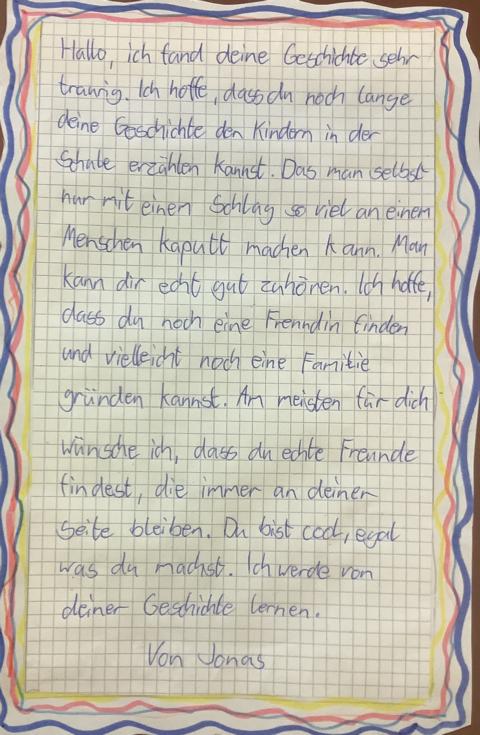 Hallo, ich fand deine Geschichte sehr
traurig. Ich hoffe, dass du noch lange
deine Geschichte den Kindern in der
Schule erzählen kannst. Das man selbst
nur mit einen Schlag so viel an einem
Menschen kaputt machen kann. Man
kann dir echt gut zuhören. Ich hoffe,
dass du noch eine Freundin finden
und vielleicht noch eine Familie
gründen kannst. Am meisten für dich
wünsche ich, dass du echte Freunde
findest, die immer an deiner
Seite bleiben. Du bist cool, egal
was du machst. Ich werde von
deiner Geschichte lernen.
Von Jonas